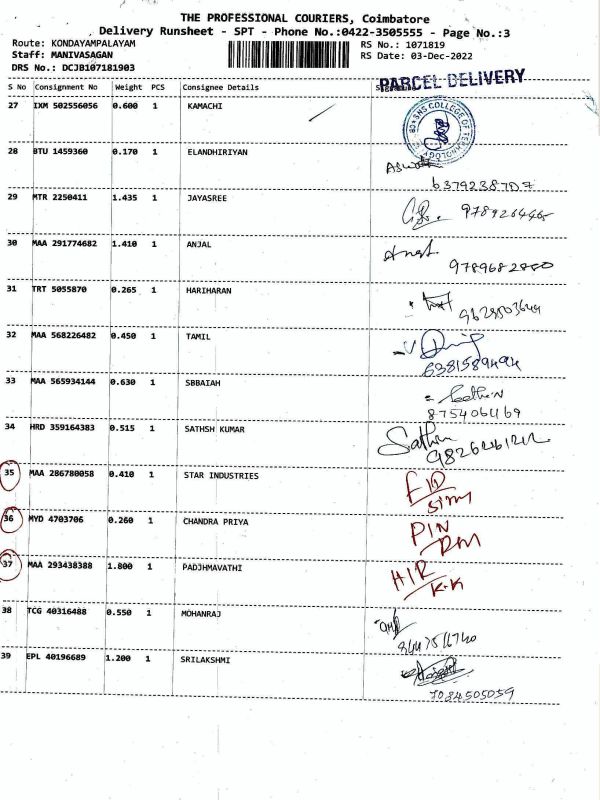 THE PROFESSIONAL COURIERS, Coimbatore
Delivery Runsheet - SPT - Phone No.:0422-3505555 - Page No.:3
Route: KONDAYAMPALAYAM RS No.: 1071819
Staff: MANIVASAGAN RS Date: 03-Dec-2022
DRS No.: DCJB107181903
PARCEL DELIVERY
S No Consignment No Weight PCS Consignee Details
27 IXM 502556056 0.600 1 KAMACHI
SNS COLLEGE OF TECHNOLOGY
28 BTU 1459360 0.170 1 ELANDHIRIYAN
29 MTR 2250411 1.435 1 JAYASREE
30 MAA 291774682 1.410 1 ANJAL
31 TRT 5055870 0.265 1 HARIHARAN
9629503649
32 MAA 568226482 0.450 1 TAMIL
6381589494
33 MAA 565934144 0.630 1 SBBAIAH
34 HRD 359164383 0.515 1 SATHSH KUMAR
35 MAA 286780058 0.410 1 STAR INDUSTRIES
36 MYD 4703706 0.260 1 CHANDRA PRIYA
PIN
37 MAA 293438388 1.800 1 PADJHMAVATHI
K.K
38 TCG 40316488 0.550 1 MOHANRAJ
39 EPL 40196689 1.200 1 SRILAKSHMI
7084505059